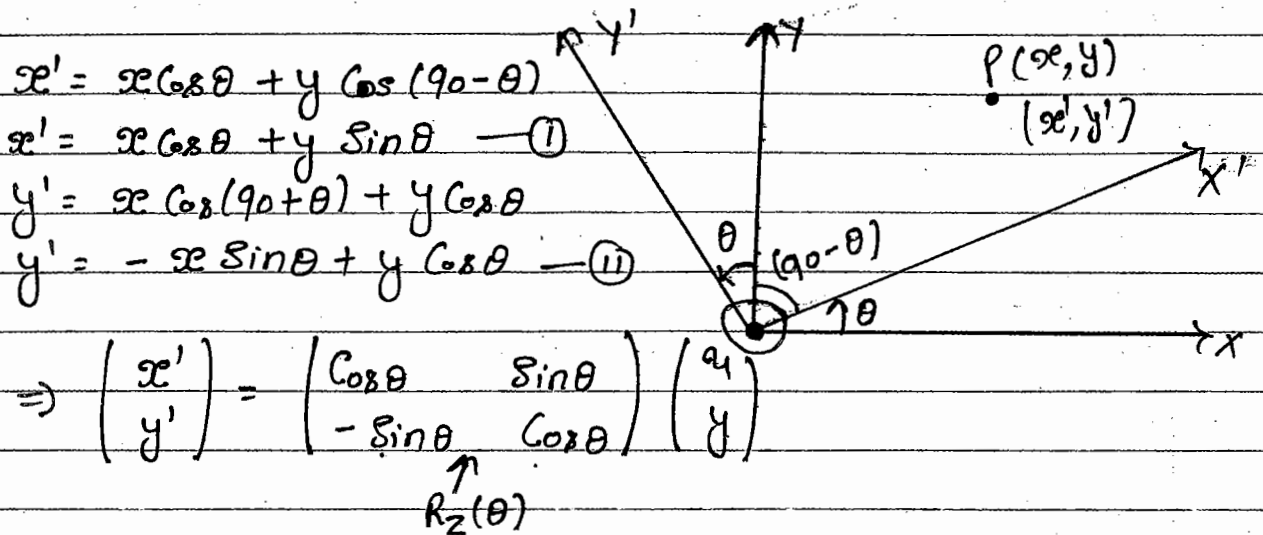 x' = x Cosθ + y Cos (90-θ)
x' = x Cosθ + y Sinθ — (I)
y' = x Cos(90+θ) + y Cosθ
y' = - x Sinθ + y Cosθ — (II)
⇒ ( x' ) = ( Cosθ Sinθ ) ( x )
( y' ) ( - Sinθ Cosθ ) ( y )
↑
R_z(θ)
Y'
Y
P(x, y)
(x', y')
X'
θ
(90-θ)
θ
X